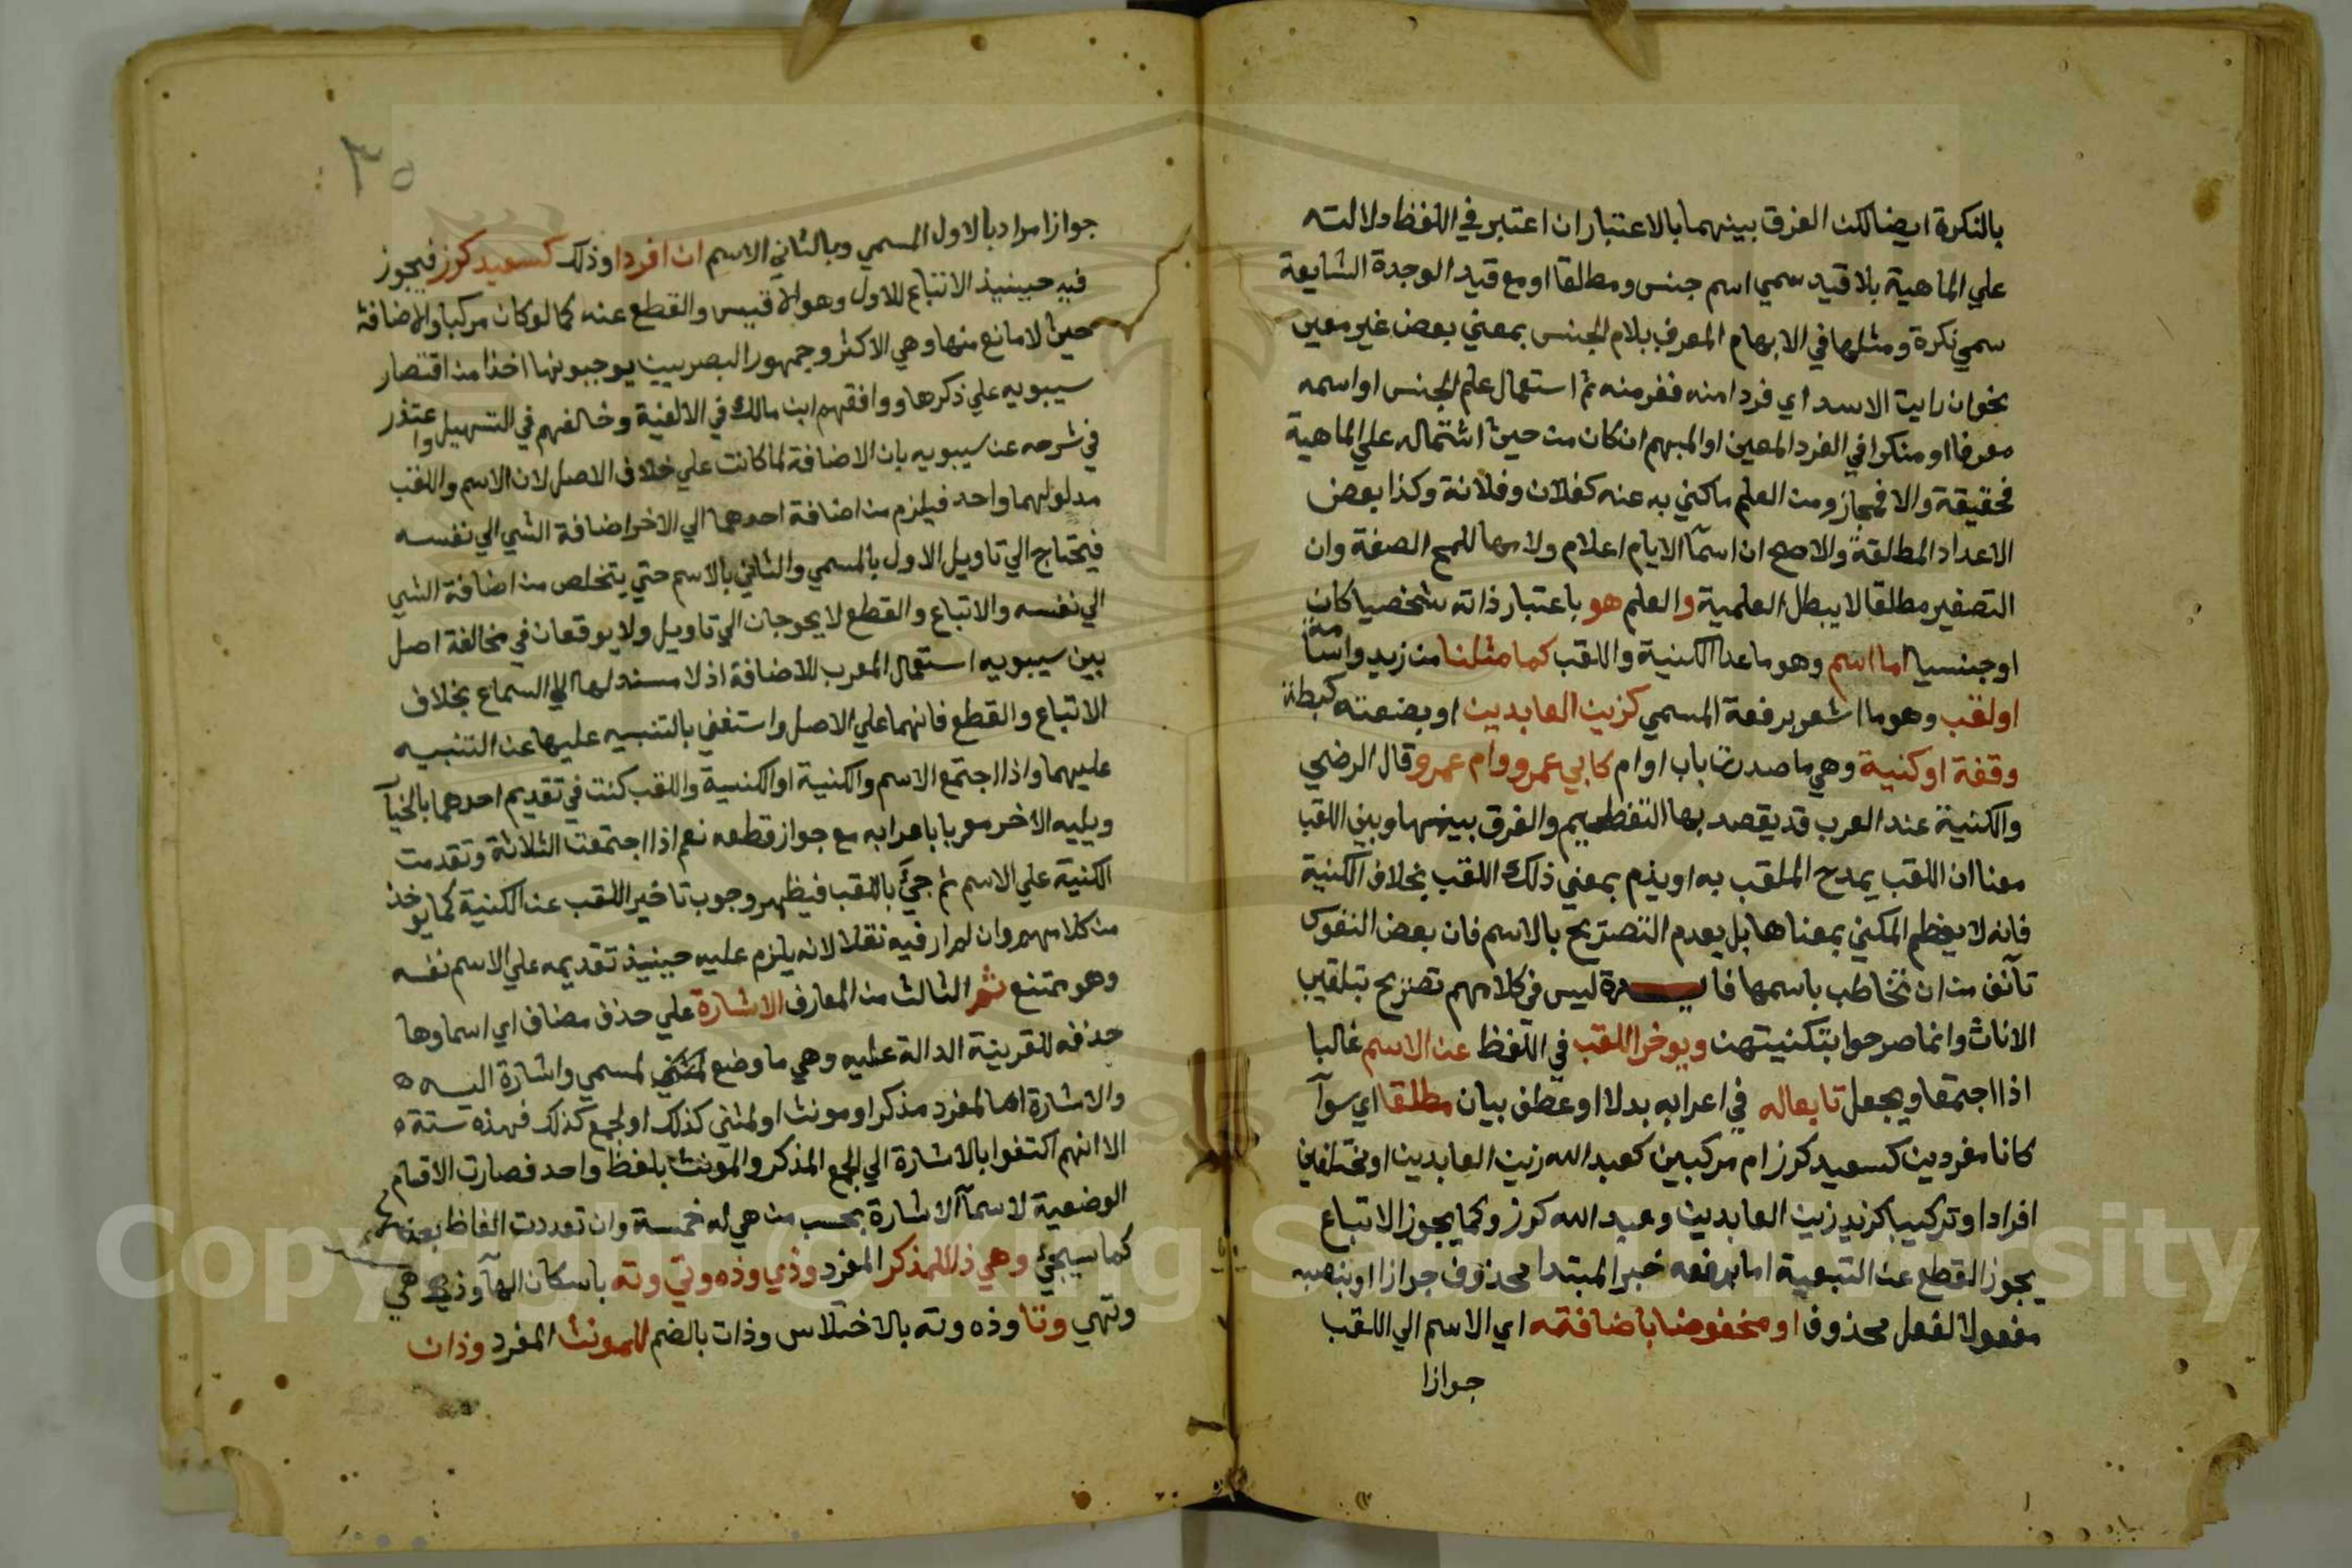 بالنكرة ايضا لكن الفرق بينهما بالاعتبار ان اعتبر في اللفظ دلالته
علي الماهية بلا قيد سمي اسم جنس ومطلقا او مع قيد الوحدة الشايعة
سمي نكرة ومثلها في الابهام المعرف بلام الجنس بمعني بعض غير معين
نحو ان رايت الاسد اي فردا منه ففر منه ثم استعمال علم الجنس او اسمه
معرفا او منكرا في الفرد المعين او المبهم ان كان من حيث اشتماله علي الماهية
فحقيقة والا فمجاز ومن العلم ماكني به عنه كفلان وفلانة وكذا بعض
الاعداد المطلقة والاصح ان اسمآ الايام اعلام ولامها للمح الصفة وان
التصغير مطلقا لا يبطل العلمية والعلم هو باعتبار ذاته شخصيا كان
او جنسيا اما اسم وهو ما عدا الكنية واللقب كما مثلنا من زيد واسامة
او لقب وهو ما اشعر برفعة المسمي كزين العابدين او بضعته كبطة
وقفة او كنية وهي ما صدرت باب او ام كابي عمرو وام عمرو قال الرضي
والكنية عند العرب قد يقصد بها التعظيم والفرق بينها وبين اللقب
معنا ان اللقب يمدح الملقب به او يذم بمعني ذلك اللقب بخلاف الكنية
فانه لا يعظم المكني بمعناها بل بعدم التصريح بالاسم فان بعض النفوس
تآنف من ان تخاطب باسمها فايدة ليس في كلامهم تصريح بتلقيب
الاناث وانما صرحوا بتكنيتهن ويوخر اللقب في اللفظ عن الاسم غالبا
اذا اجتمعا ويجعل تابعا له في اعرابه بدلا او عطف بيان مطلقا اي سوآ
كانا مفردين كسعيد كرز ام مركبين كعبد الله زين العابدين او مختلفين
افرادا وتركيبا كزيد زين العابدين وعبد الله كرز وكما يجوز الاتباع
يجوز القطع عن التبعية اما برفعه خبر المبتدا محذوف جوازا او بنصبه
مفعولا لفعل محذوف او مخفوضا باضافته اي الاسم الي اللقب
جوازا
٣٥
جوازا مرادا بالاول المسمي وبالثاني الاسم ان افردا وذلك كسعيد كرز فيجوز
فيه حينيذ الاتباع للاول وهو الاقيس والقطع عنه كما لو كان مركبا والاضافة
حيث لا مانع منها وهي الاكثر وجمهور البصريين يوجبونها اخذا من اقتصار
سيبويه علي ذكرها ووافقهم ابن مالك في الالفية وخالفهم في التسهيل واعتذر
في شرحه عن سيبويه بان الاضافة لما كانت علي خلاف الاصل لان الاسم واللقب
مدلولهما واحد فيلزم من اضافة احدهما الي الاخر اضافة الشي الي نفسه
فيحتاج الي تاويل الاول بالمسمي والثاني بالاسم حتي يتخلص من اضافة الشي
الي نفسه والاتباع والقطع لا يحوجان الي تاويل ولا يوقعان في مخالفة اصل
بين سيبويه استعمال العرب للاضافة اذ لا مستند لها الا السماع بخلاف
الاتباع والقطع فانهما علي الاصل واستغني بالتنبيه عليها عن التنبيه
عليهما واذا اجتمع الاسم والكنية او الكنية واللقب كنت في تقديم احدهما بالخيآ
ويليه الاخر معربا باعرابه مع جواز قطعه نعم اذا اجتمعت الثلاثة وتقدمت
الكنية علي الاسم ثم جيئ باللقب فيظهر وجوب تاخير اللقب عن الكنية كما يوخذ
من كلامهم وان لم ار فيه نقلا لانه يلزم عليه حينيذ تقديمه علي الاسم نفسه
وهو ممتنع ثم الثالث من المعارف الاشارة علي حذف مضاف اي اسماوها
حذفه للقرينة الدالة عليه وهي ما وضع لمسمي واشارة اليه
والاشارة اما لمفرد مذكر او مونث او لمثني كذلك او لجمع كذلك فهذه ستة
الا انهم اكتفوا بالاشارة الي الجمع المذكر والمونث بلفظ واحد فصارت الاقسام
الوضعية لاسمآ الاشارة بحسب من هي له خمسة وان تعددت الفاظ بعضها
كما سيجئ وهي ذا للمذكر المفرد وذي وذه وتي وته باسكان الهآ وذهي
وتهي وتا وذه وته بالاختلاس وذات بالضم للمونث المفرد وذان
Copyright © King Saud University